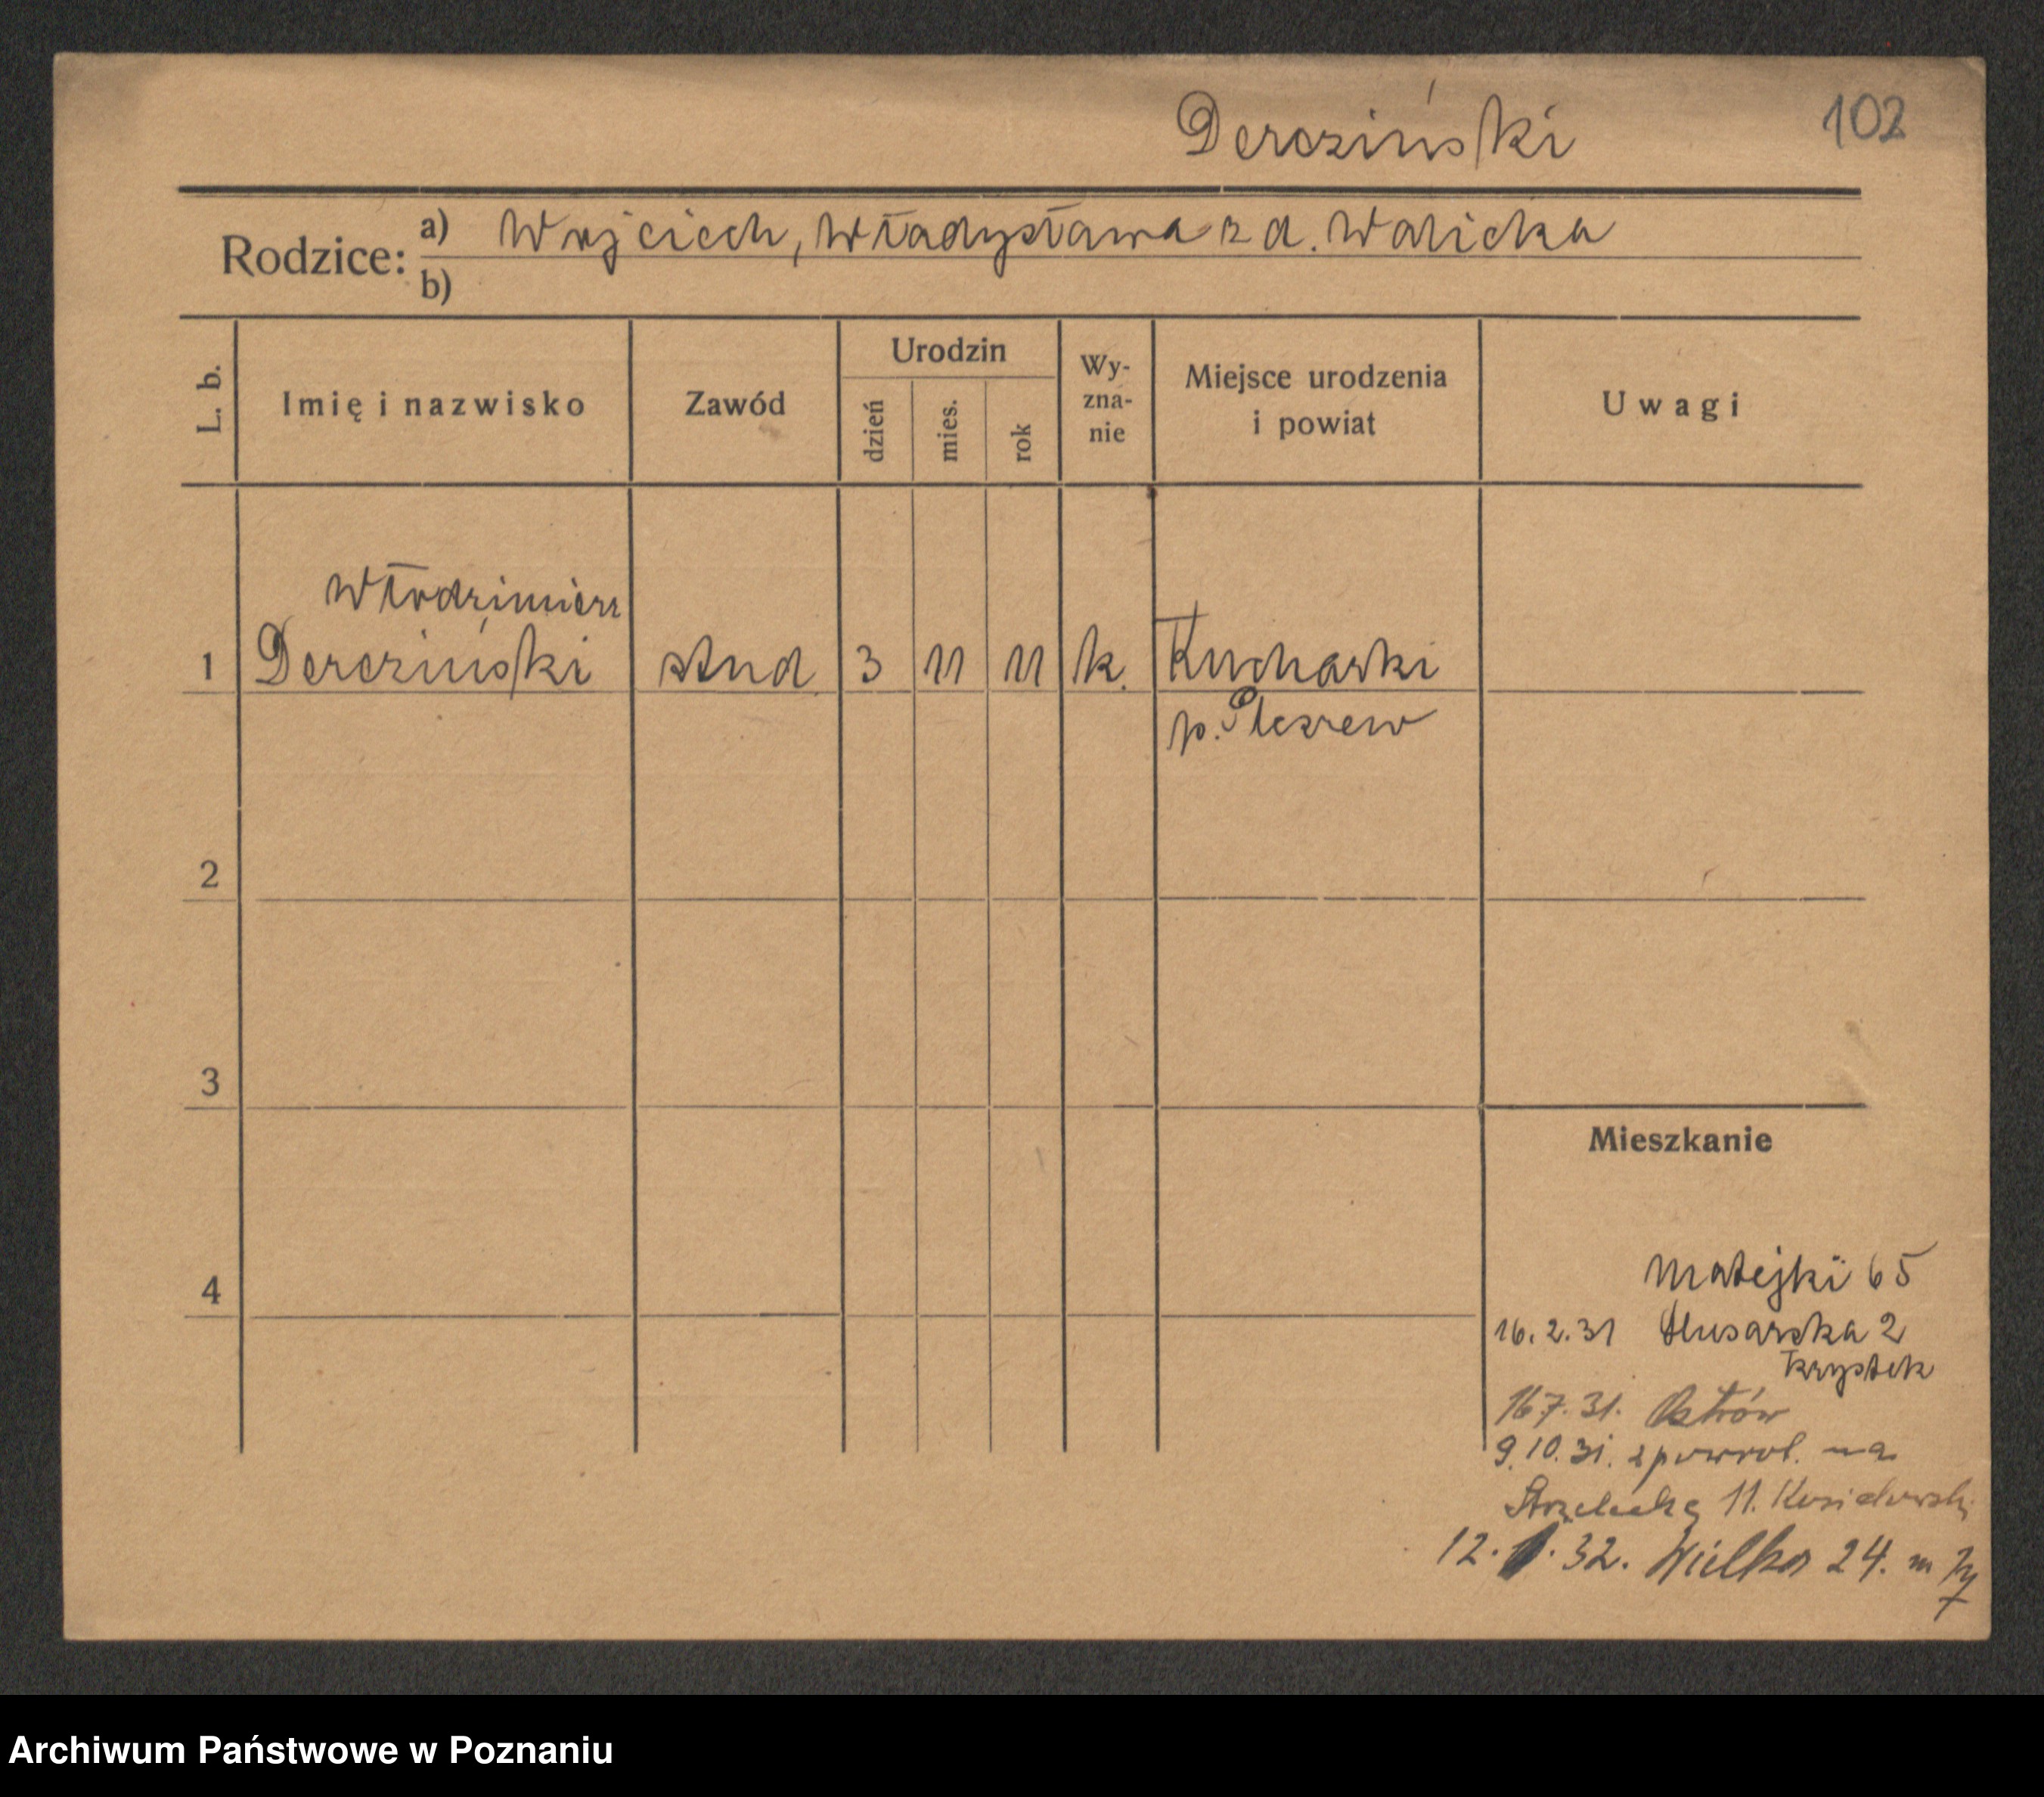 Dercziński
102
Rodzice: a) Wojciech, Władysława z d. Walicka
b)
L. b.
Imię i nazwisko
Zawód
Urodzin
dzień
mies.
rok
Wy-
zna-
nie
Miejsce urodzenia
i powiat
Uwagi
Włodzimierz
1 Dercziński stud. 3 11 11 k. Kucharki
p. Pleszew
2
3
4
Mieszkanie
Matejki 65
16.2.31 Husarska 2
Krystek
16.7.31. Ostrów
9.10.31. z powrot. na
Strzelecką 11.
12. 32. Wielka 24. m
Archiwum Państwowe w Poznaniu